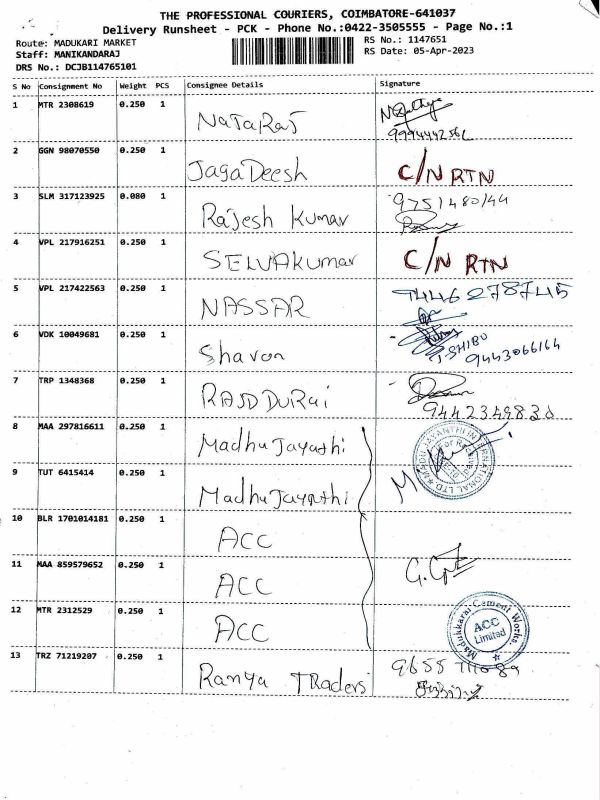 THE PROFESSIONAL COURIERS, COIMBATORE-641037
Delivery Runsheet - PCK - Phone No.:0422-3505555 - Page No.:1
Route: MADUKARI MARKET
Staff: MANIKANDARAJ
DRS No.: DCJB114765101
RS No.: 1147651
RS Date: 05-Apr-2023
S No Consignment No Weight PCS Consignee Details Signature
1 MTR 2308619 0.250 1 NATARAJ
9994442562
2 GGN 98070550 0.250 1 JagaDeesh C/N RTN
3 SLM 317123925 0.080 1 Rajesh Kumar 9751480144
4 VPL 217916251 0.250 1 SELVAKumar C/N RTN
5 VPL 217422563 0.250 1 NASSAR 9446278745
6 VDK 10049681 0.250 1 Sharon
SHIBO
9443066164
7 TRP 1348368 0.250 1 RAJDDURai
8 MAA 297816611 0.250 1 MadhuJayathi
9 TUT 6415414 0.250 1 MadhuJayathi
10 BLR 1701014181 0.250 1 ACC
11 MAA 859579652 0.250 1 ACC
12 MTR 2312529 0.250 1 ACC
Madukkarai Cement Works.
ACC
Limited
13 TRZ 71219207 0.250 1 Ramya TRaders